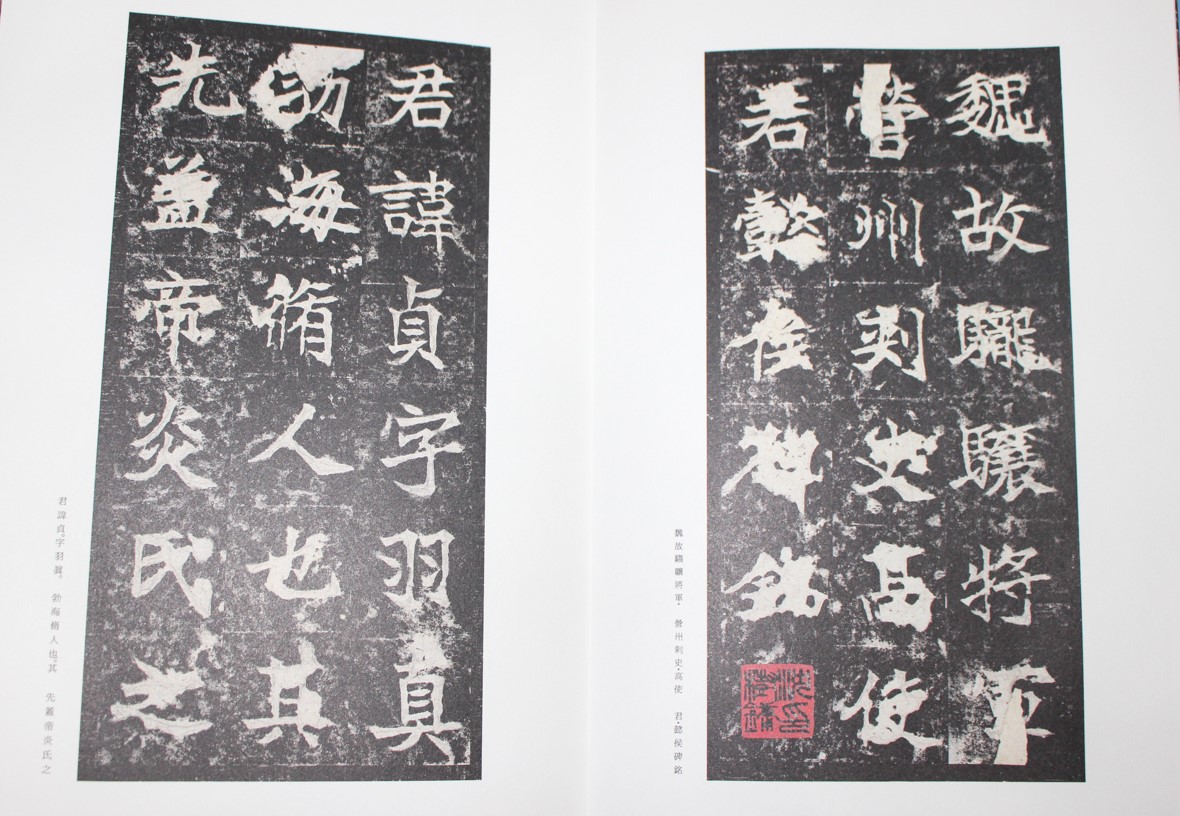 魏故驣驤將軍
營州刺史高使
君懿侯碑銘
魏故驣驤將軍・營州刺史・高使君・懿侯碑銘
君諱貞字羽真
勃海脩人也其
先葢帝炎氏之
君諱貞。字羽眞。勃海脩人也。其先葢帝炎氏之